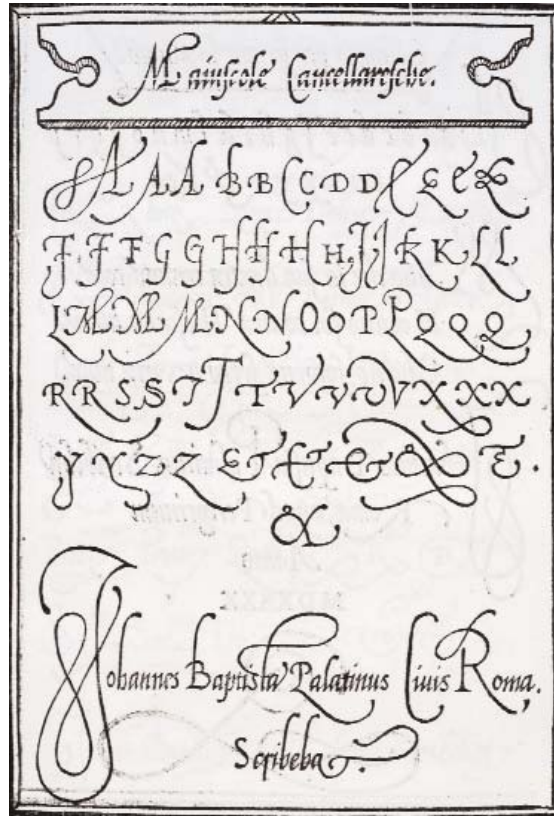 Maiuscole Cancellaresche.
A A A B B C C D D E E E E
F F F G G H H H H J J K K L L
L M M M N N O O P P Q Q Q
R R S S T T T V V V V X X X
Y Y Z Z & & & & &.
&
Johannes Baptista Palatinus Ciuis Roma,.
Scribeba&.